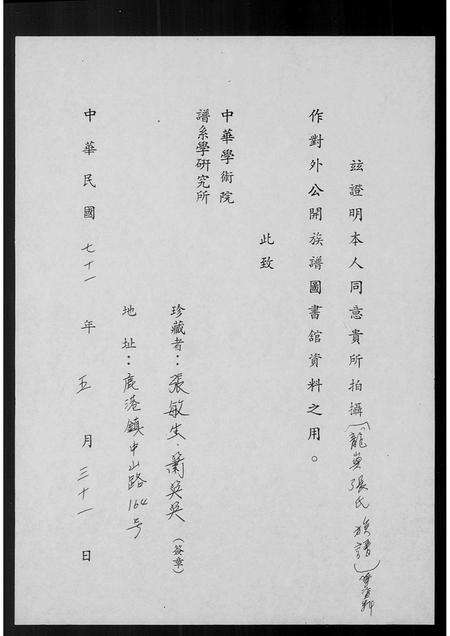 茲證明本人同意貴所拍攝(「龍嵬張氏族譜」)
作對外公開族譜圖書舘資料之用。
此致
中華學術院
譜系學研究所
珍藏者：張敏生．蕭奕奕（簽章）
地址：鹿港鎮中山路164号
中華民國七十一年五月三十一日